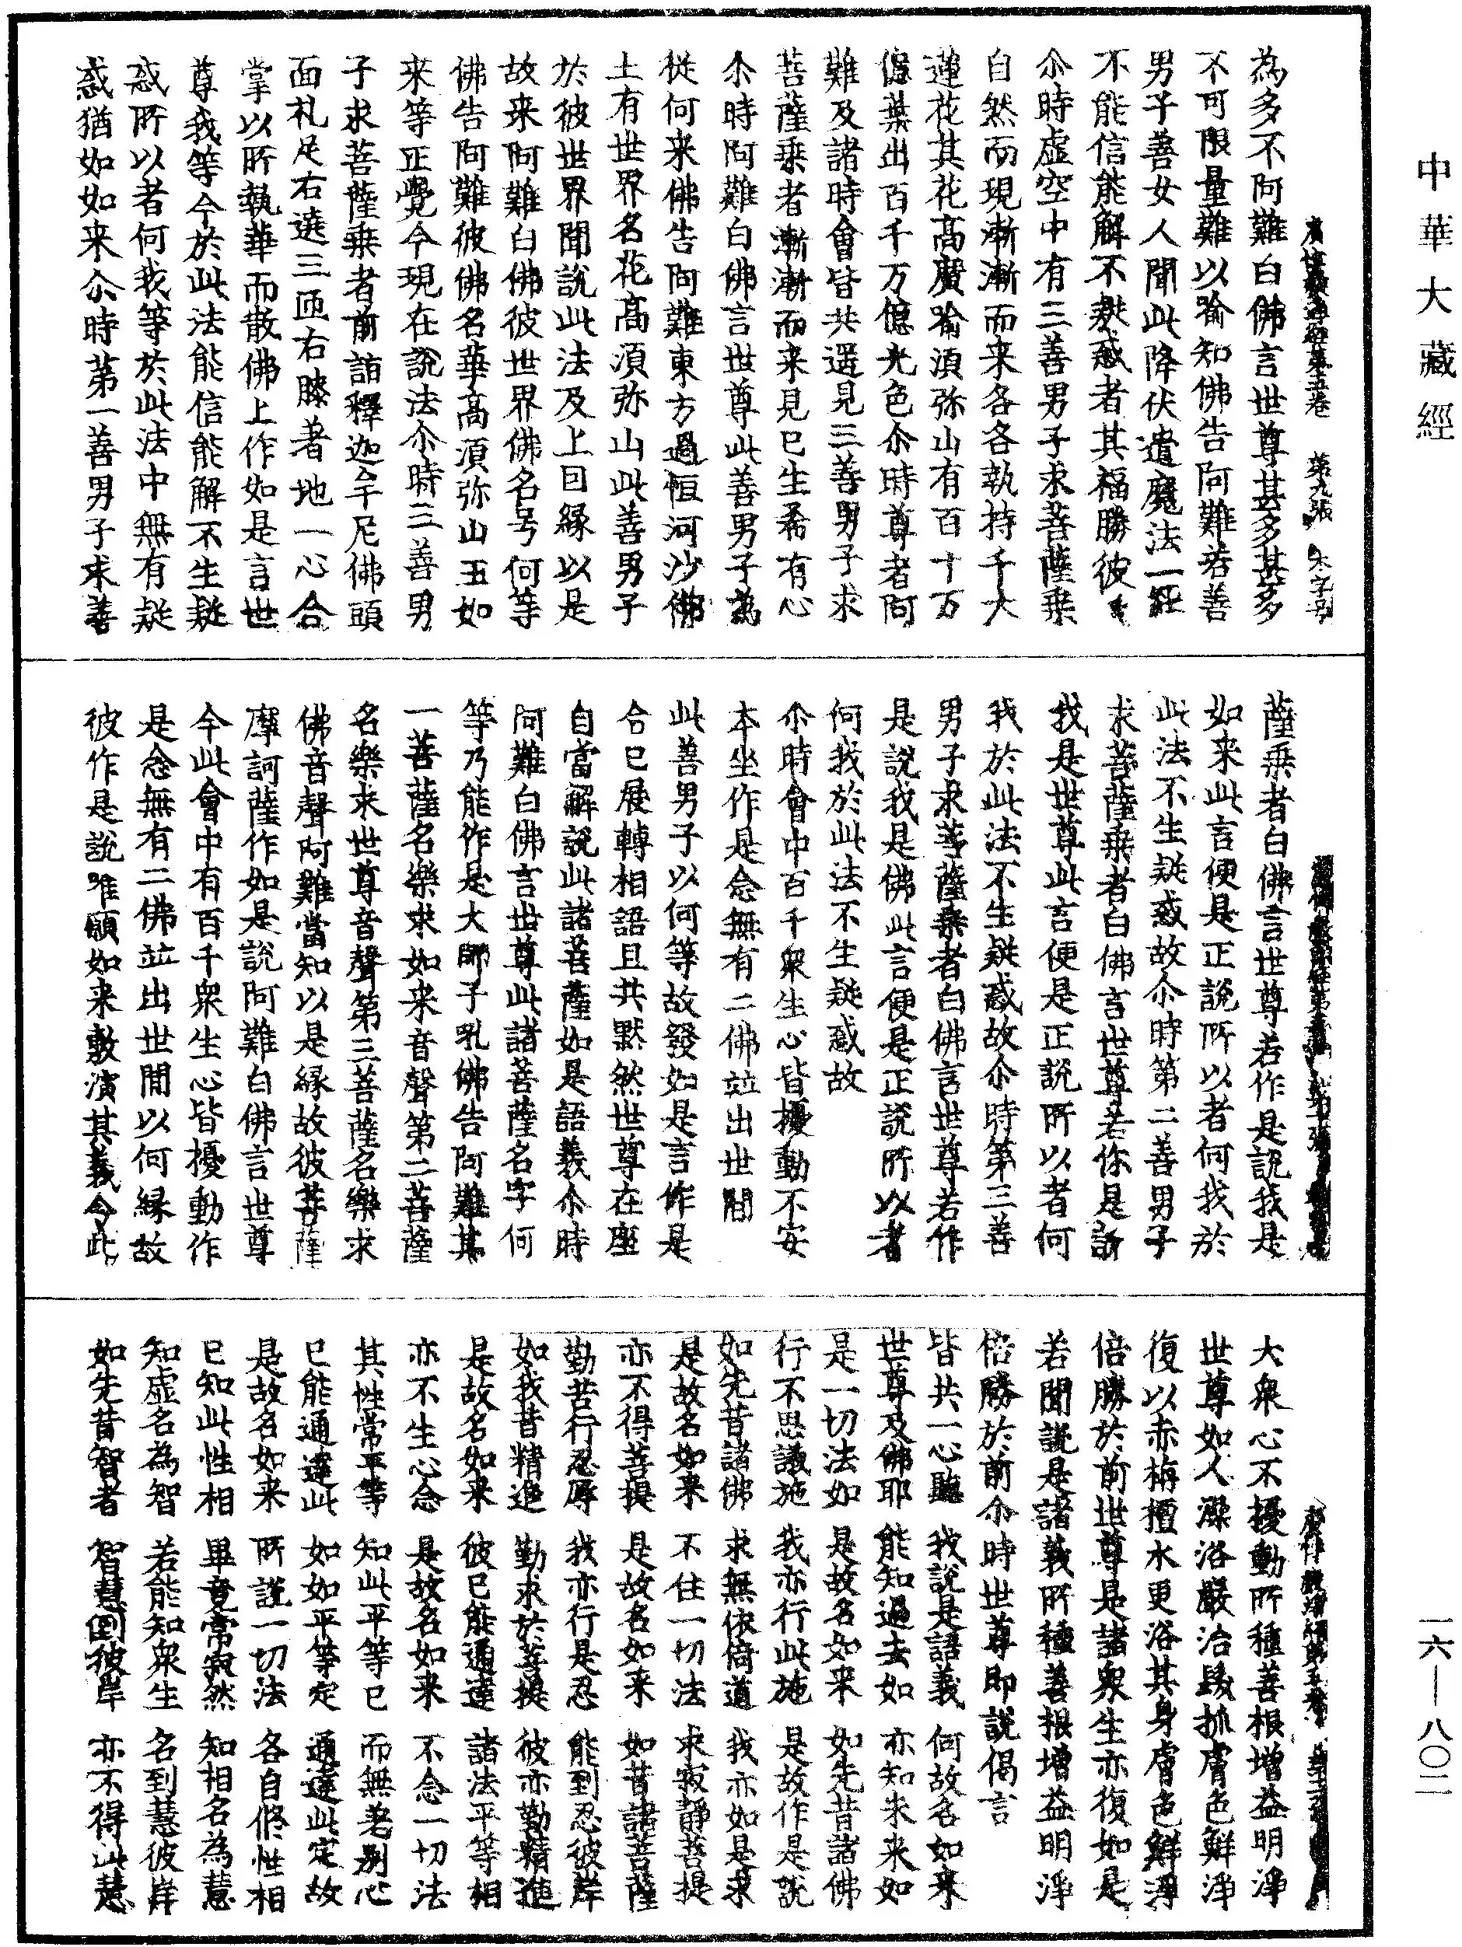 中華大藏經
為多不阿難白佛言世尊甚多甚多
不可限量難以喻知佛告阿難若善
男子善女人聞此降伏遣魔法一經
不能信能解不疑惑者其福勝彼
尒時虛空中有三善男子求菩薩乗
自然而現漸漸而来各各執持千大
蓮花其花高廣喻須弥山有百十万
億葉出百千万億光色尒時尊者阿
難及諸時會皆共遥見三善男子求
菩薩乗者漸漸而来見已生希有心
尒時阿難白佛言世尊此善男子為
従何来佛告阿難東方過恒河沙佛
土有世界名花高須弥山此善男子
於彼世界聞說此法及上因縁以是
故来阿難白佛彼世界佛名号何等
佛告阿難彼佛名華高須弥山王如
来等正覺今現在說法尒時三善男
子求菩薩乗者前詣釋迦牟尼佛頭
面礼足右遶三匝右膝著地一心合
掌以所執華而散佛上作如是言世
尊我等今於此法能信能解不生疑
惑所以者何我等於此法中無有疑
惑猶如如来尒時第一善男子求菩
薩乗者白佛言世尊若作是說我是
如来此言便是正說所以者何我於
此法不生疑惑故尒時第二善男子
求菩薩乗者白佛言世尊若作是說
我是世尊此言便是正說所以者何
我於此法不生疑惑故尒時第三善
男子求菩薩乗者白佛言世尊若作
是說我是佛此言便是正說所以者
何我於此法不生疑惑故
尒時會中百千衆生心皆擾動不安
本坐作是念無有二佛竝出世間
此善男子以何等故發如是言作是
合已展轉相語且共默然世尊在座
自當解說此諸菩薩如是語義尒時
阿難白佛言世尊此諸菩薩名字何
等乃能作是大師子吼佛告阿難其
一菩薩名樂求如来音聲第二菩薩
名樂求世尊音聲第三菩薩名樂求
佛音聲阿難當知以是縁故彼菩薩
摩訶薩作如是說阿難白佛言世尊
今此會中有百千衆生心皆擾動作
是念無有二佛竝出世間以何縁故
彼作是說唯願如来敷演其義令此
大衆心不擾動所種善根增益明淨
世尊如人澡浴嚴治髮抓膚色鮮淨
復以赤栴檀水更浴其身膚色鮮淨
倍勝於前世尊是諸衆生亦復如是
若聞說是諸義所種善根增益明淨
倍勝於前尒時世尊即說偈言
皆共一心聽　我說是語義　何故名如来
世尊及佛耶　能知過去如　亦知未来如
是一切法如　是故名如来　如先昔諸佛
行不思議施　我亦行此施　是故作是說
如先昔諸佛　求無依倚道　我亦如是求
是故名如来　不住一切法　求寂靜菩提
亦不得菩提　是故名如来　如昔諸菩薩
勤苦行忍辱　我亦行是忍　能到忍彼岸
如我昔精進　勤求於菩提　彼亦勤精進
是故名如来　彼已能通達　諸法平等相
亦不生心念　是故名如来　不念一切法
其性常平等　知此平等已　而無差別心
已能通達此　如如平等定　通達此定故
是故名如来　所說一切法　各自俢性相
已知此性相　畢竟常寂然　知相名為慧
知虛名為智　若能知衆生　名到慧彼岸
如先昔智者　智慧到彼岸　亦不得此慧
一六—八〇二